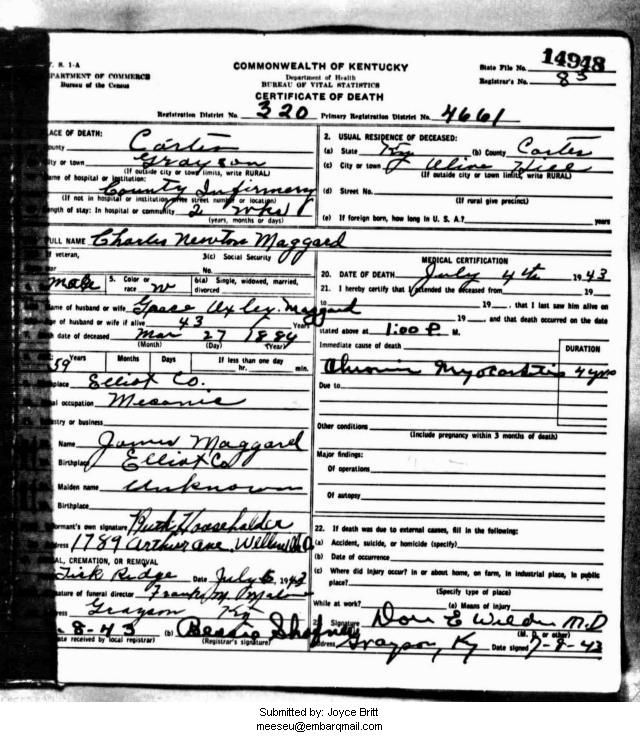 V. S. 1-A
PARTMENT OF COMMERCE
Bureau of the Census
COMMONWEALTH OF KENTUCKY
Department of Health
BUREAU OF VITAL STATISTICS
CERTIFICATE OF DEATH
State File No. 14948
Registrar's No. 83
Registration District No. 320 Primary Registration District No. 4661
LACE OF DEATH:
ounty Carter
ity or town Grayson
(If outside city or town limits, write RURAL)
ame of hospital or institution:
County Infirmery
(If not in hospital or institution write street number or location)
ngth of stay: In hospital or community 2 wks
(years, months or days)
2. USUAL RESIDENCE OF DECEASED:
(a) State Ky (b) County Carter
(c) City or town Olive Hill
(If outside city or town limits, write RURAL)
(d) Street No.
(If rural give precinct)
(e) If foreign born, how long in U. S. A.? years
ULL NAME Charles Newton Maggard
f veteran, 3(c) Social Security
No.
male 5. Color or race W 6(a) Single, widowed, married, divorced
ame of husband or wife Grace Maggard
ge of husband or wife if alive 43 Years
h date of deceased Mar 27 1884
(Month) (Day) (Year)
59 Years Months Days If less than one day
hr. min.
place Elliot Co.
al occupation Mecanic
stry or business
Name James Maggard
Birthplace Elliot Co
Maiden name Unknown
Birthplace
ormant's own signature Ruth Householder
ress 1789 Arthur Ave
AL, CREMATION, OR REMOVAL
Tick Ridge Date July 1943
ature of funeral director Frank M
ress Grayson Ky
-8-43 (b) Bessie
ate received by local registrar) (Registrar's signature)
MEDICAL CERTIFICATION
20. DATE OF DEATH July 4th 1943
21. I hereby certify that I attended the deceased from 19
to 19 , that I last saw him alive on
19 , and that death occurred on the date
stated above at 1:00 P M.
Immediate cause of death
DURATION
Chronic Myocarditis 4 yrs
Due to
Other conditions
(Include pregnancy within 3 months of death)
Major findings:
Of operations
Of autopsy
22. If death was due to external causes, fill in the following:
(a) Accident, suicide, or homicide (specify)
(b) Date of occurrence
(c) Where did injury occur? in or about home, on farm, in industrial place, in public
place?
(Specify type of place)
While at work? (e) Means of injury
Signature Don E Wilder M.D
(M. D. or other)
ddress Grayson, Ky Date signed 7-8-43
Submitted by: Joyce Britt
meeseu@embarqmail.com